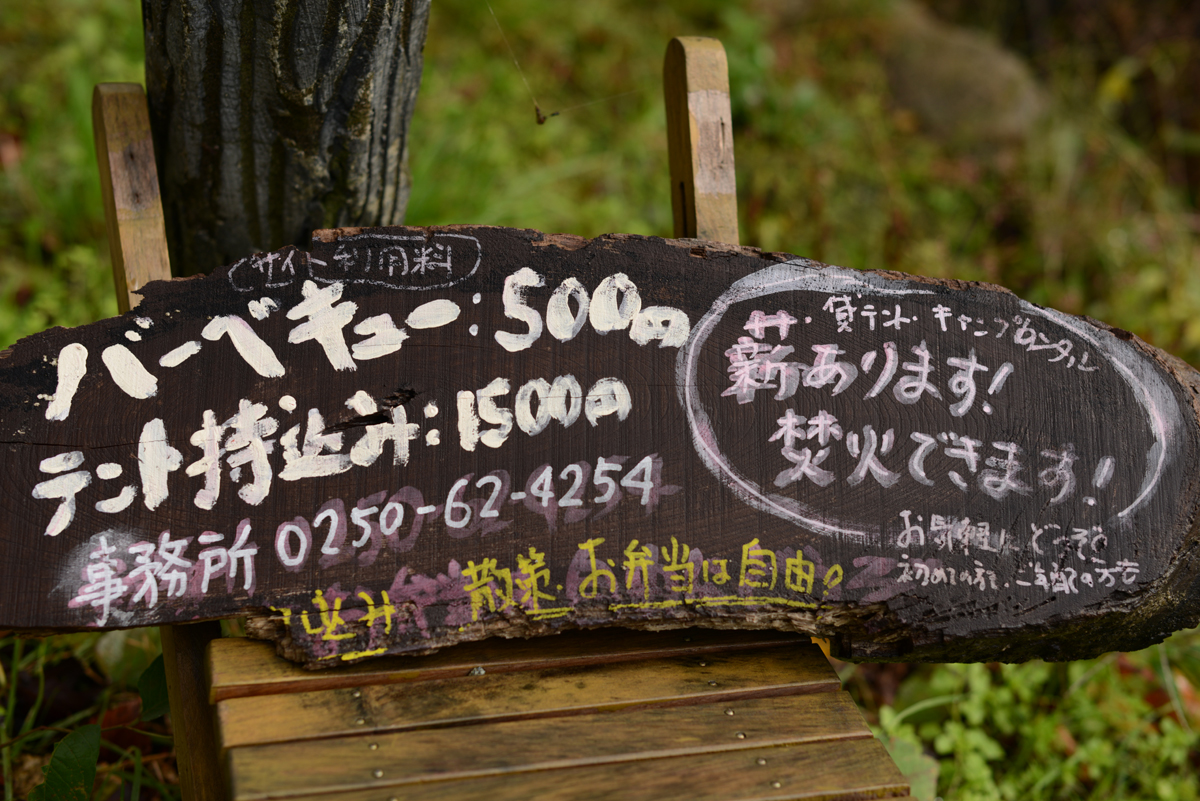 サイト利用料
バーベキュー:500円
テント持込み:1500円
事務所 0250-62-4254
込み 散策 お弁当は自由!
サ・貸テント・キャンプ
薪あります!
焚火できます!
お気軽にどうぞ
初めての方、ご年配の方も